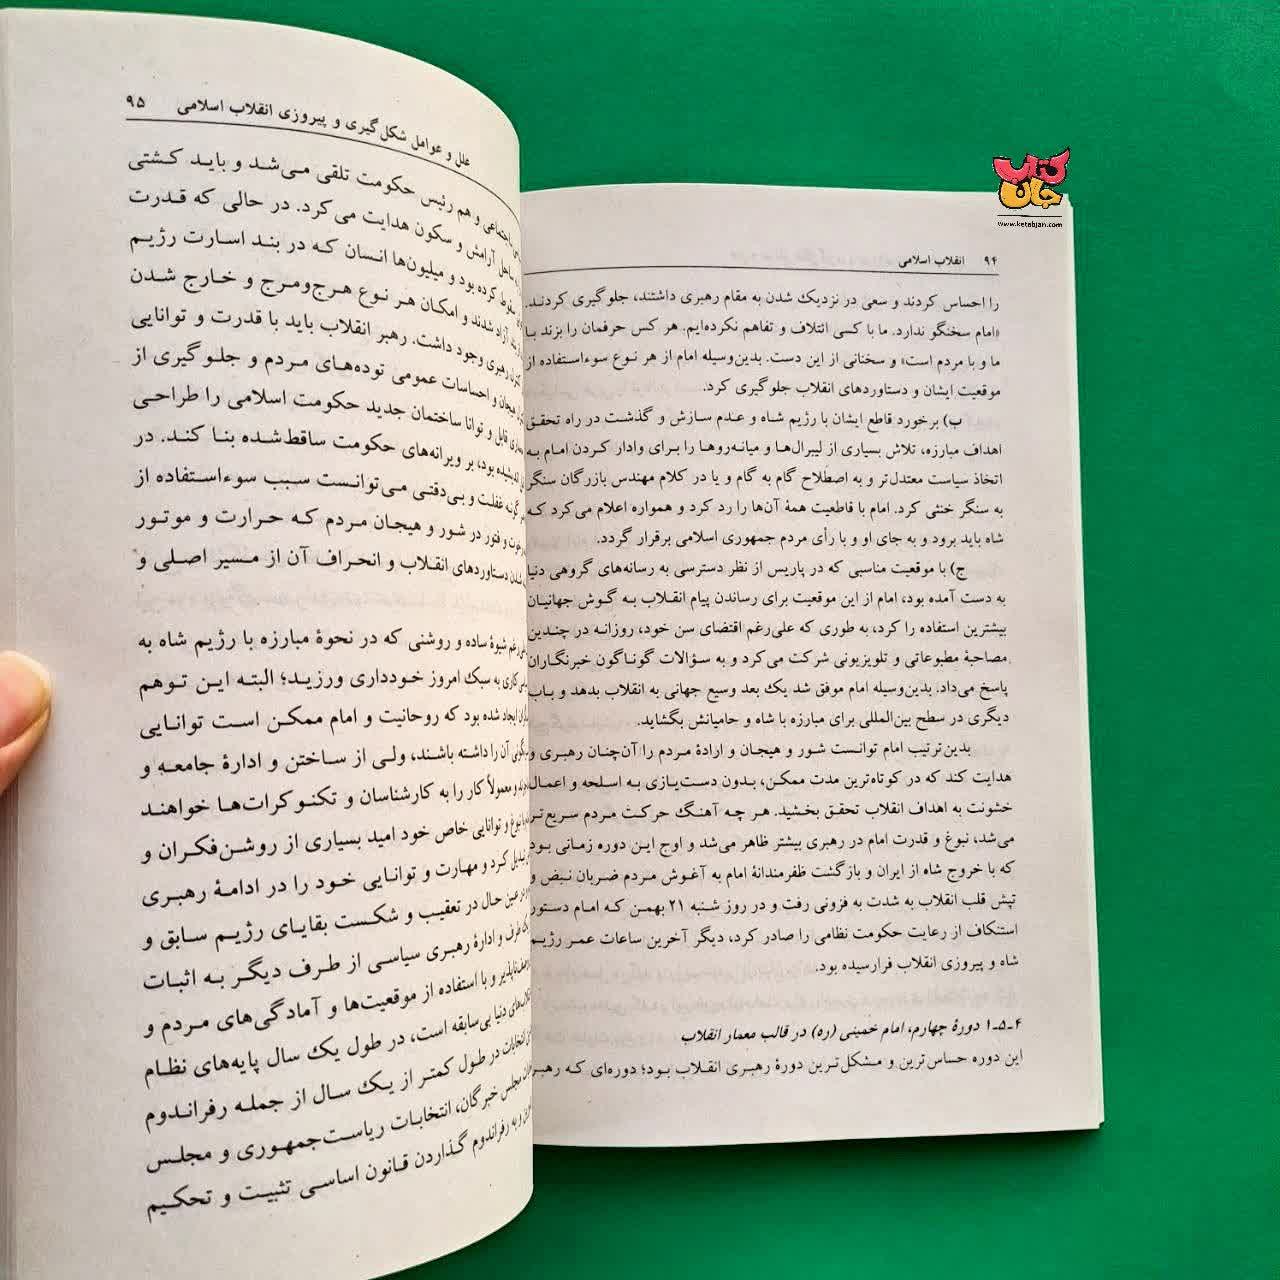 کتاب جان
www.ketabjan.com
۹۴ انقلاب اسلامی
را احساس کردند و سعی در نزدیک شدن به مقام رهبری داشتند، جلوگیری کردند.
«امام سخنگو ندارد. ما با کسی ائتلاف و تفاهم نکرده‌ایم. هر کس حرفمان را بزند با
ما و با مردم است» و سخنانی از این دست. بدین‌وسیله امام از هر نوع سوءاستفاده از
موقعیت ایشان و دستاوردهای انقلاب جلوگیری کرد.
ب) برخورد قاطع ایشان با رژیم شاه و عدم سازش و گذشت در راه تحقق
اهداف مبارزه، تلاش بسیاری از لیبرال‌ها و میانه‌روها را برای وادار کردن امام به
اتخاذ سیاست معتدل‌تر و به اصطلاح گام به گام و یا در کلام مهندس بازرگان سنگر
به سنگر خنثی کرد. امام با قاطعیت همهٔ آن‌ها را رد کرد و همواره اعلام می‌کرد که
شاه باید برود و به جای او و با رأی مردم جمهوری اسلامی برقرار گردد.
ج) با موقعیت مناسبی که در پاریس از نظر دسترسی به رسانه‌های گروهی دنیا
به دست آمده بود، امام از این موقعیت برای رساندن پیام انقلاب به گوش جهانیان
بیشترین استفاده را کرد، به طوری که علی‌رغم اقتضای سن خود، روزانه در چندین
مصاحبهٔ مطبوعاتی و تلویزیونی شرکت می‌کرد و به سؤالات گوناگون خبرنگاران
پاسخ می‌داد. بدین‌وسیله امام موفق شد یک بعد وسیع جهانی به انقلاب بدهد و باب
دیگری در سطح بین‌المللی برای مبارزه با شاه و حامیانش بگشاید.
بدین‌ترتیب امام توانست شور و هیجان و ارادهٔ مردم را آن‌چنان رهبری و
هدایت کند که در کوتاه‌ترین مدت ممکن، بدون دست‌یازی به اسلحه و اعمال
خشونت به اهداف انقلاب تحقق بخشید. هر چه آهنگ حرکت مردم سریع‌تر
می‌شد، نبوغ و قدرت امام در رهبری بیشتر ظاهر می‌شد و اوج این دوره زمانی بود
که با خروج شاه از ایران و بازگشت ظفرمندانهٔ امام به آغوش مردم ضربان نبض و
تپش قلب انقلاب به شدت به فزونی رفت و در روز شنبه ۲۱ بهمن که امام دستور
استنکاف از رعایت حکومت نظامی را صادر کرد، دیگر آخرین ساعات عمر رژیم
شاه و پیروزی انقلاب فرارسیده بود.
۱ـ۵ـ۴ دورهٔ چهارم، امام خمینی (ره) در قالب معمار انقلاب
این دوره حساس‌ترین و مشکل‌ترین دورهٔ رهبری انقلاب بود؛ دوره‌ای که رهبر
علل و عوامل شکل‌گیری و پیروزی انقلاب اسلامی ۹۵
اجتماعی و هم رئیس حکومت تلقی می‌شد و باید کشتی
ساحل آرامش و سکون هدایت می‌کرد. در حالی که قدرت
سقوط کرده بود و میلیون‌ها انسان که در بند اسارت رژیم
آزاد شدند و امکان هر نوع هرج‌ومرج و خارج شدن
رهبری وجود داشت. رهبر انقلاب باید با قدرت و توانایی
هیجان و احساسات عمومی توده‌های مردم و جلوگیری از
قابل و توانا ساختمان جدید حکومت اسلامی را طراحی
بود، بر ویرانه‌های حکومت ساقط‌شده بنا کند. در
غفلت و بی‌دقتی می‌توانست سبب سوءاستفاده از
و فتور در شور و هیجان مردم که حرارت و موتور
شدن دستاوردهای انقلاب و انحراف آن از مسیر اصلی و
رغم شیوهٔ ساده و روشنی که در نحوهٔ مبارزه با رژیم شاه به
کاری به سبک امروز خودداری ورزید؛ البته این توهم
ایجاد شده بود که روحانیت و امام ممکن است توانایی
آن را داشته باشند، ولی از ساختن و ادارهٔ جامعه و
و معمولاً کار را به کارشناسان و تکنوکرات‌ها خواهند
نبوغ و توانایی خاص خود امید بسیاری از روشن‌فکران و
تبدیل کرد و مهارت و توانایی خود را در ادامهٔ رهبری
در عین حال در تعقیب و شکست بقایای رژیم سابق و
طرف و ادارهٔ رهبری سیاسی از طرف دیگر به اثبات
و با استفاده از موقعیت‌ها و آمادگی‌های مردم و
دنیا بی‌سابقه است، در طول یک سال پایه‌های نظام
انتخابات در طول کمتر از یک سال از جمله رفراندوم
مجلس خبرگان، انتخابات ریاست‌جمهوری و مجلس
و به رفراندوم گذاردن قانون اساسی تثبیت و تحکیم